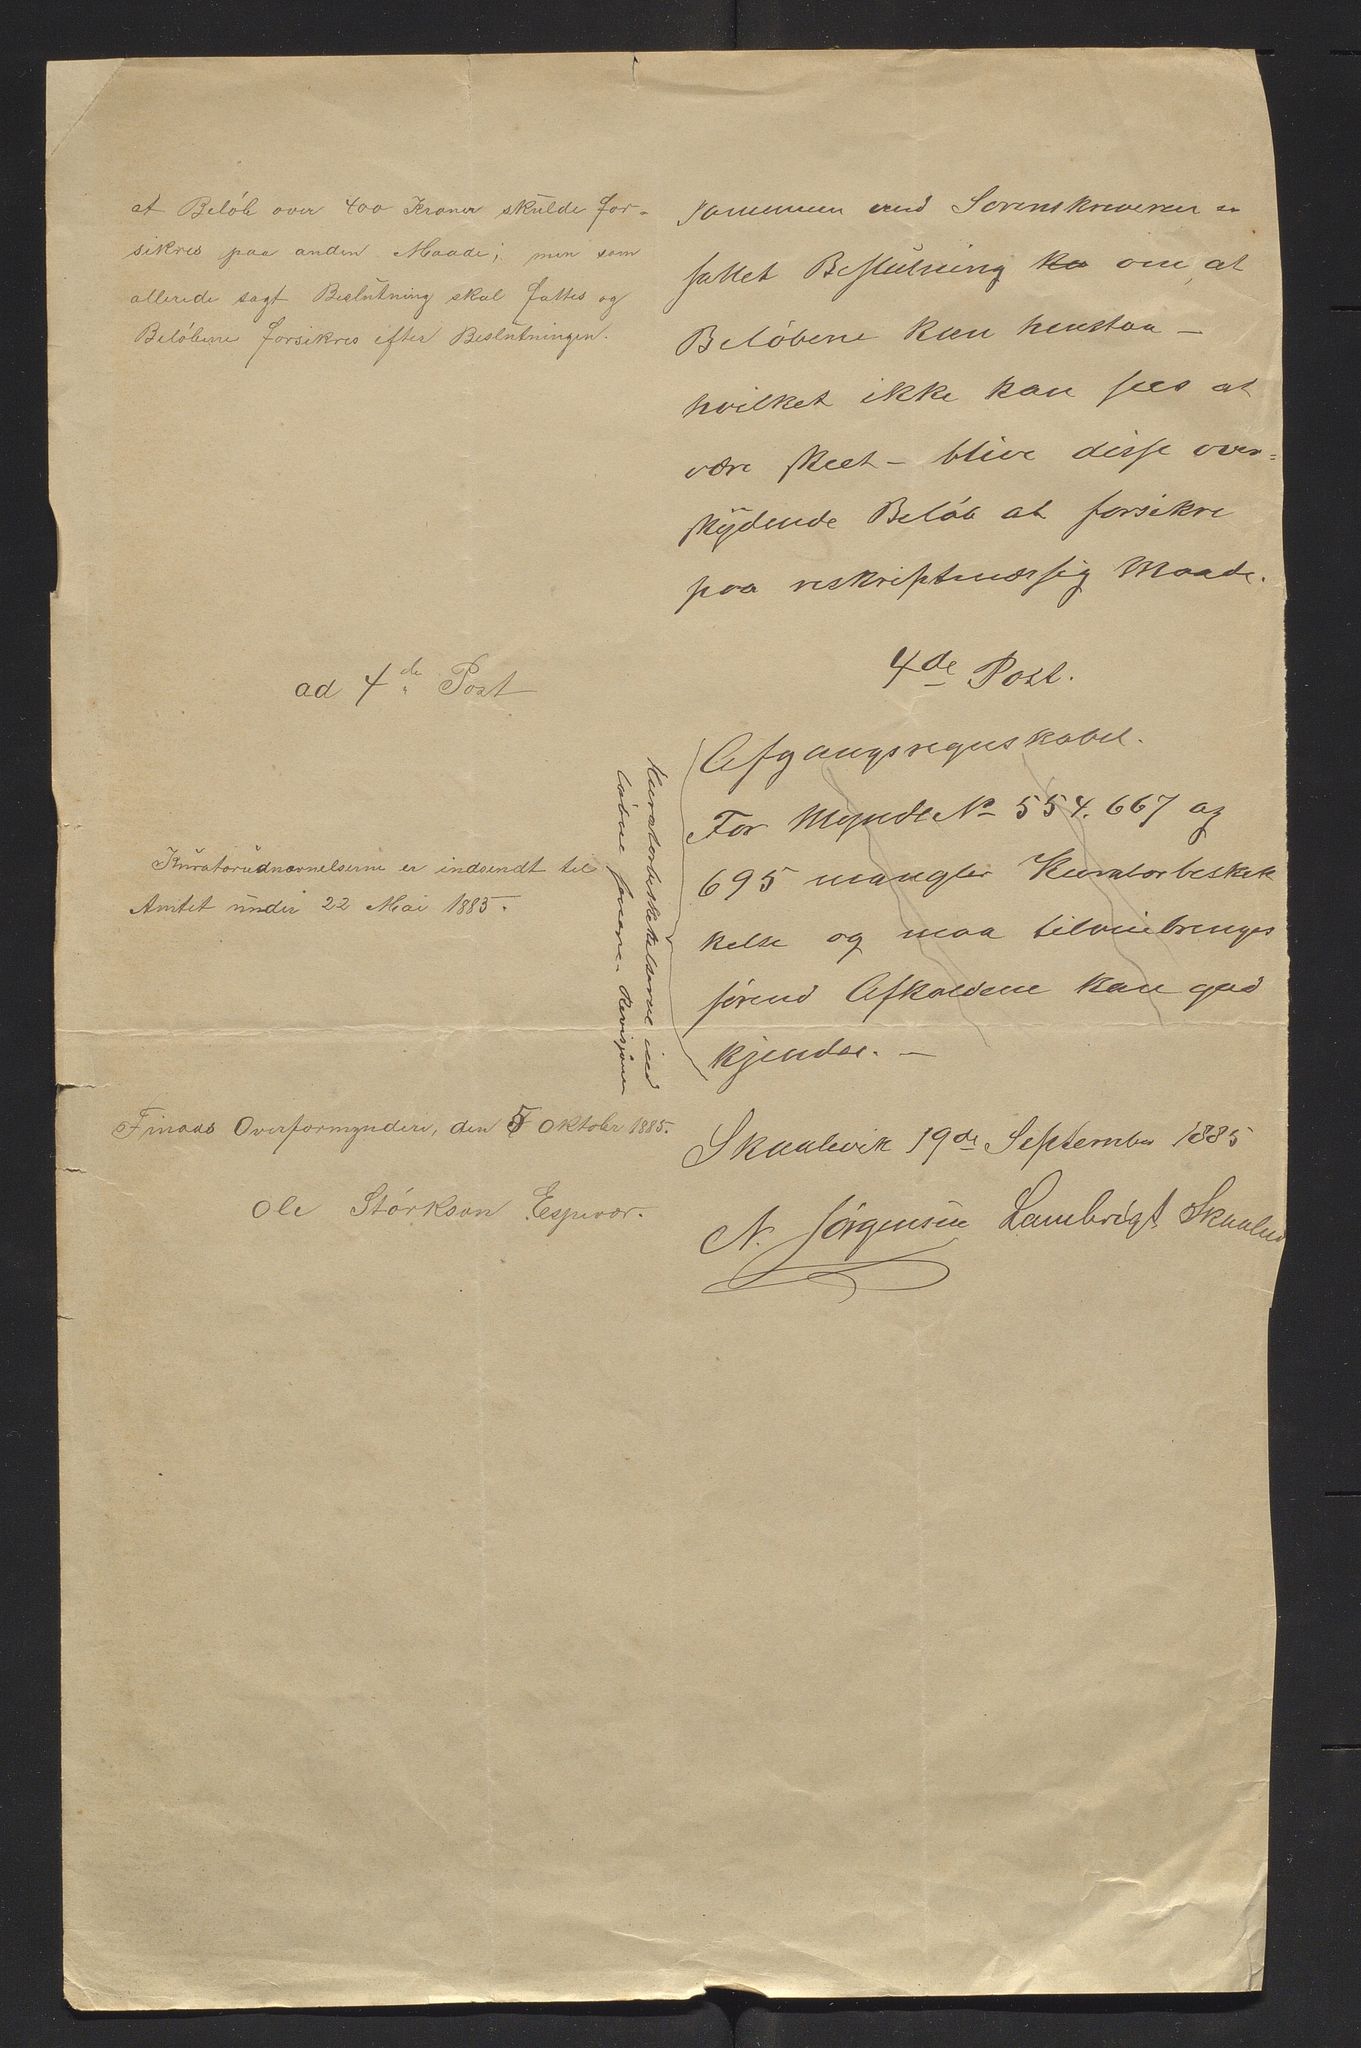 at Beløb over 400 Kroner skulde for-
sikres paa anden Maade; men som
allerede sagt Beslutning skal fattes og
Beløbene forsikres efter Beslutningen.
ad 4de Post
Kuratorudnævnelserne er indsendt til
Amtet under 22 Mai 1885.
Finaas Overformynderi, den 5 Oktober 1885.
Ole Størkson Espevær.
Kuratorbeskikkelserne ind
løbne senere. Revisjonen
sammen med Sorenskriveren er
fattet Beslutning ka om, at
Beløbene kan henstaa –
hvilket ikke kan sees at
være skeet – blive disse over-
skydende Beløb at forsikre
paa reskriptmæssig Maade.
4de Post.
Afgangsregnskabet.
For Myndl No 554. 667 og
695 mangler Kuratorbeskik
kelse og maa tilveiebringes
førend Afkaldene kan god
kjendes. –
Skaalevik 19de September 1885
N. Jørgensen Lambrigt Skaalev